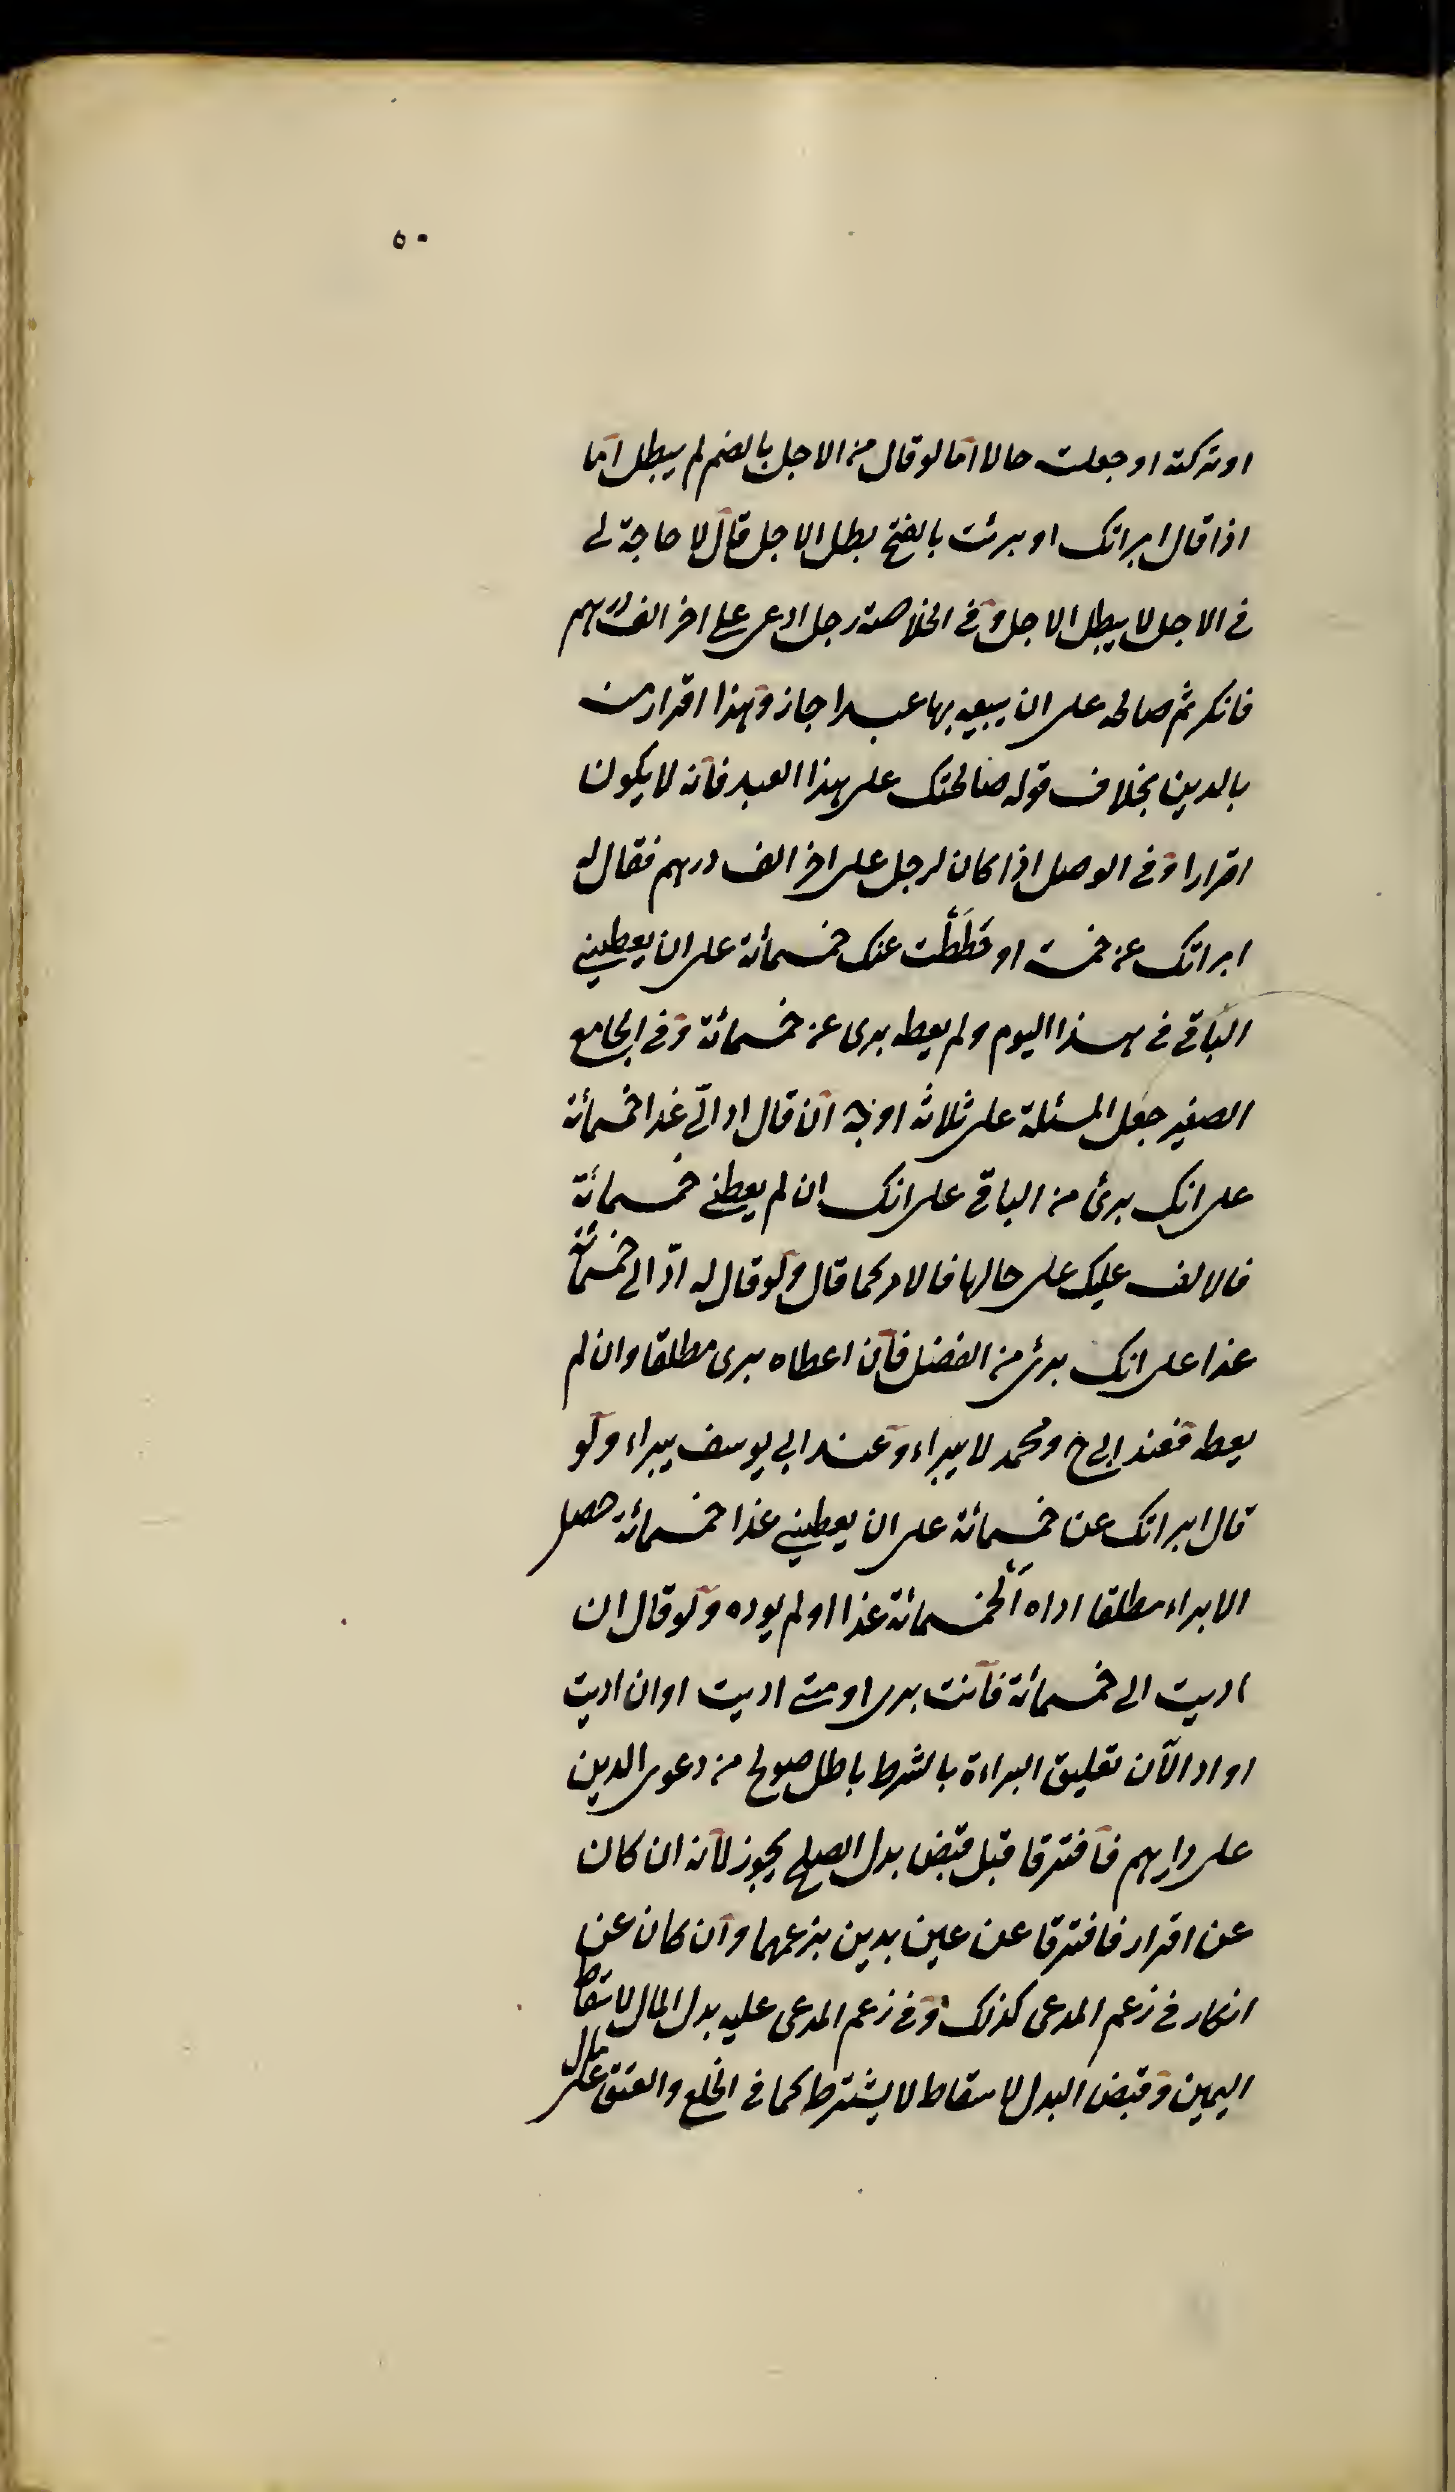 ٥٠
او تركته او جعلت حالا اما لو قال من الاجل بالضم لم يبطل اما
اذا قال ابراتك او برئت بالفتح بطل الاجل قال لا حاجة لى
فى الاجل لا يبطل الاجل وفى الخلاصة رجل ادعى على اخر الف درهم
فانكر ثم صالحه على ان يبيعه بها عبدا جاز وهذا اقرار منه
بالدين بخلاف قوله صالحتك على هذا العبد فانه لا يكون
اقرارا وفى الوصل اذا كان لرجل على اخر الف درهم فقال له
ابراتك عن خمسة او حَطَطْت عنك خمسمائة على ان يعطينى
الباقى فى هذا اليوم ولم يعطه برى عن خمسمائة وفى الجامع
الصغير جعل المسئلة على ثلاثة اوجه ان قال اد الىّ غدا خمسمائة
على انك برئ من الباقى على انك ان لم يعطنى خمسمائة
فالالف عليك على حالها فالامر كما قال ولو قال له ادّ الى خمسمائة
غدا على انك برئ من الفضل فان اعطاه برى مطلقا وان لم
يعط فعند ابى ح ومحمد لا يبراء وعند ابى يوسف يبراء ولو
قال ابراتك عن خمسمائة على ان يعطينى غدا خمسمائة حصل
الابراء مطلقا اداه الخمسمائة غدا او لم يوده ولو قال ان
اديت الى خمسمائة فانت برى او متى اديت او ان اديت
او اد الآن تعليق البراءة بالشرط باطل صولح من دعوى الدين
على دراهم فافترقا قبل قبض بدل الصلح يجوز لانه ان كان
عن اقرار فافترقا عن عين بدين بزعمهما وان كان عن
انكار فى زعم المدعى كذلك وفى زعم المدعى عليه بدل المال لاسقاط
اليمين وقبض البدل لاسقاط لا يشترط كما فى الخلع والعتق على مال